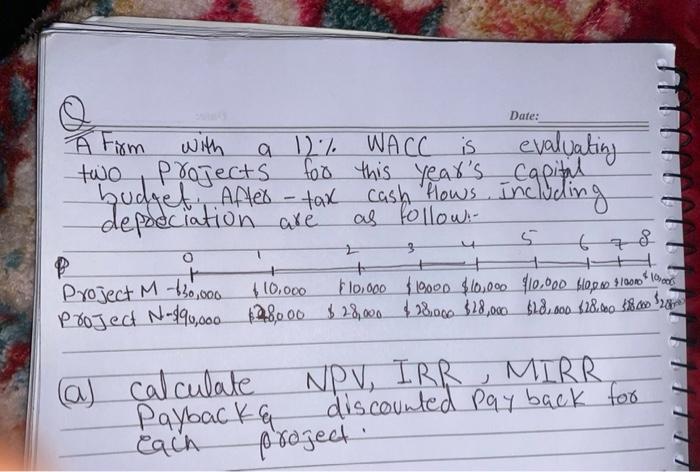 Q
Date:
A Firm with a 12% WACC is evaluating
two projects for this year's capital
budget. After-tax cash flows. including
depreciation are as follow:-
0 1 2 3 4 5 6 7 8
Project M -$30,000 $10,000 $10,000 $10000 $10,000 $10,000 $10,000 $10000 $10,000
Project N -$90,000 $28,000 $28,000 $28,000 $28,000 $28,000 $28,000 $28,000 $28000
(a) calculate NPV, IRR, MIRR
Payback & discounted pay back for
each project.